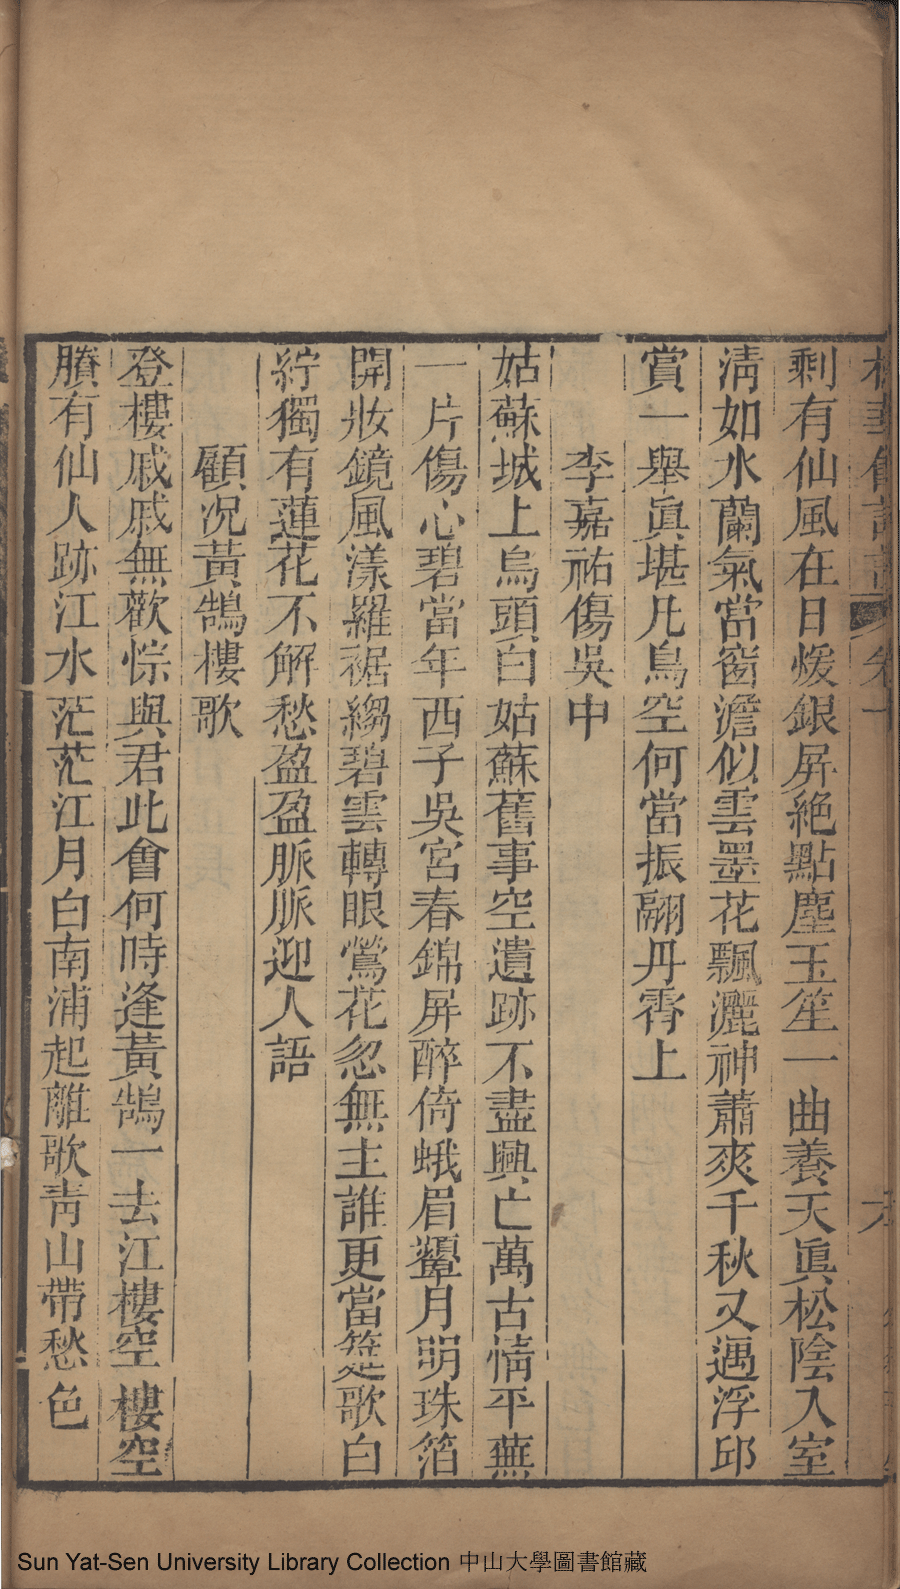 剩有仙風在日煖銀屏絶點塵玉笙一曲養天眞松陰入室
淸如水蘭氣當窗澹似雲墨花飄灑神蕭爽千秋又遇浮邱
賞一舉眞堪凡鳥空何當振翮丹霄上
李嘉祐傷吳中
姑蘇城上烏頭白姑蘇舊事空遺跡不盡興亡萬古情平蕪
一片傷心碧當年西子吳宮春錦屏醉倚蛾眉顰月明珠箔
開妝鏡風漾羅裾縐碧雲轉眼鶯花忽無主誰更當筵歌白
紵獨有蓮花不解愁盈盈脈脈迎人語
顧况黃鵠樓歌
登樓戚戚無歡悰與君此會何時逢黃鵠一去江樓空樓空
賸有仙人跡江水茫茫江月白南浦起離歌靑山帶愁色
Sun Yat-Sen University Library Collection 中山大學圖書館藏